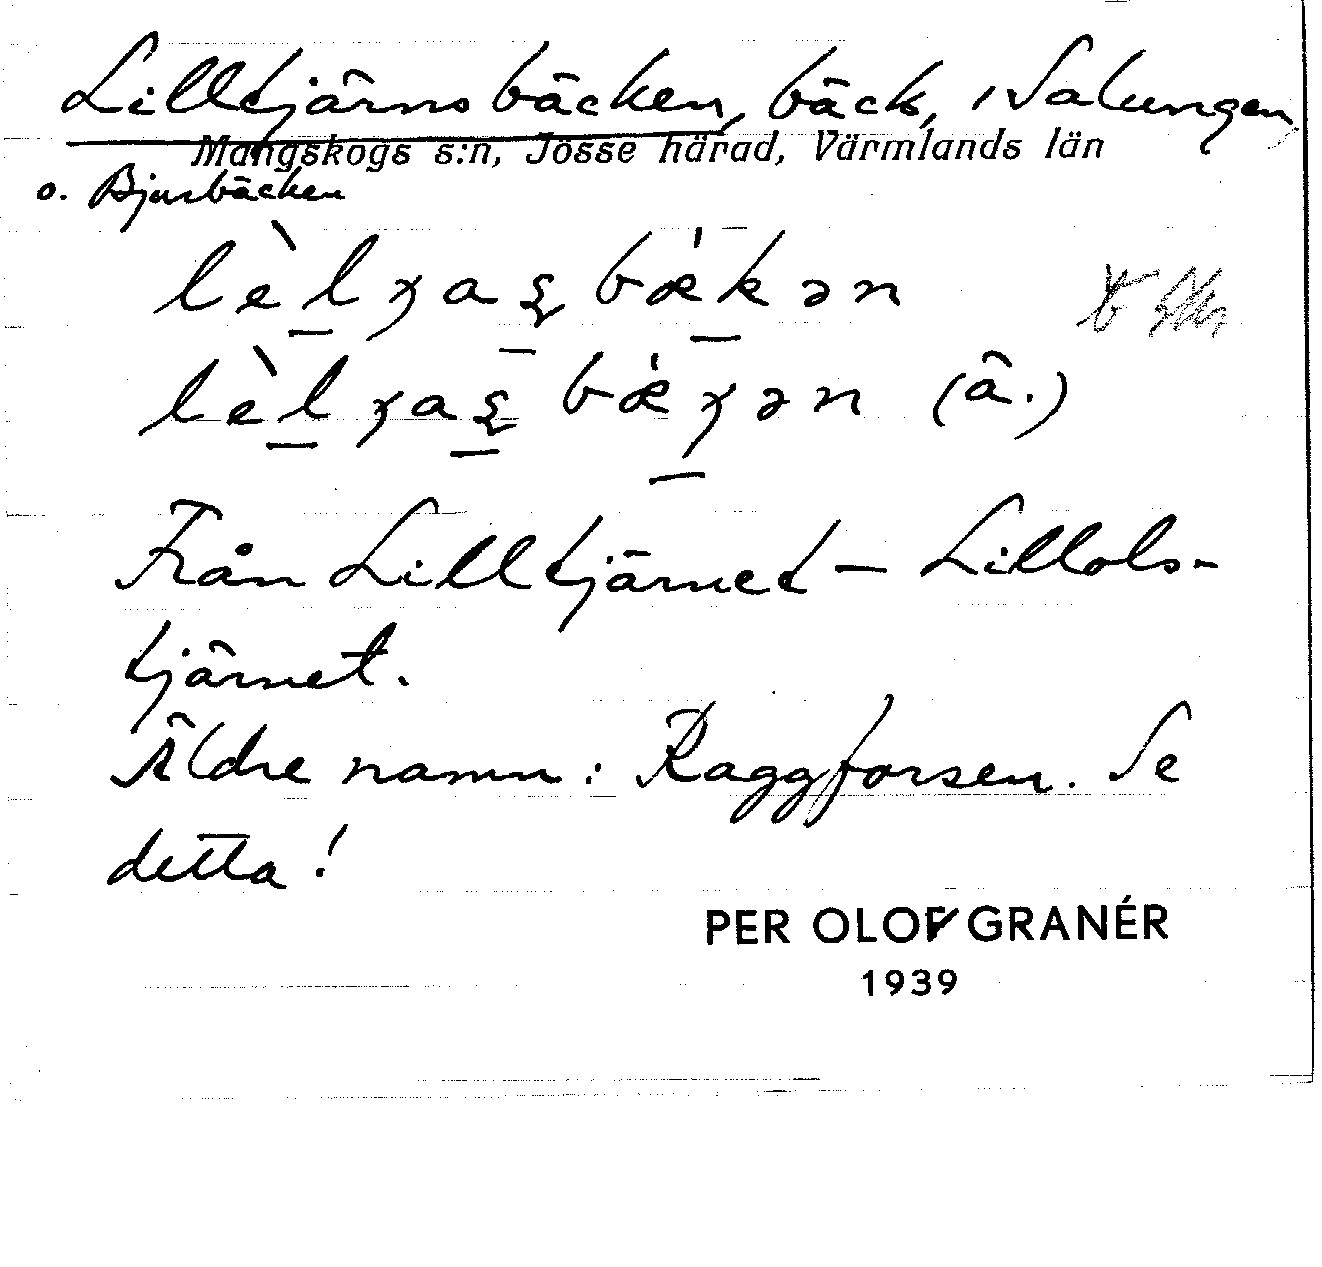 Lilltjärnsbäcken, bäck, i Salungen,
Mangskogs s:n, Jösse härad, Värmlands län
o. Bjursbäcken
(ä.)
Från Lilltjärnet – Lillols-
tjärnet.
Äldre namn: Raggforsen. Se
detta!
PER OLOF GRANÉR
1939